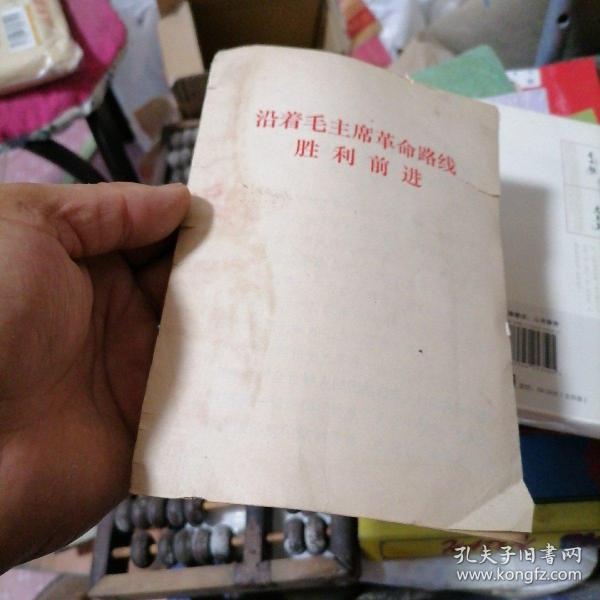 沿着毛主席革命路线
胜利前进
孔夫子旧书网
www.kongfz.com